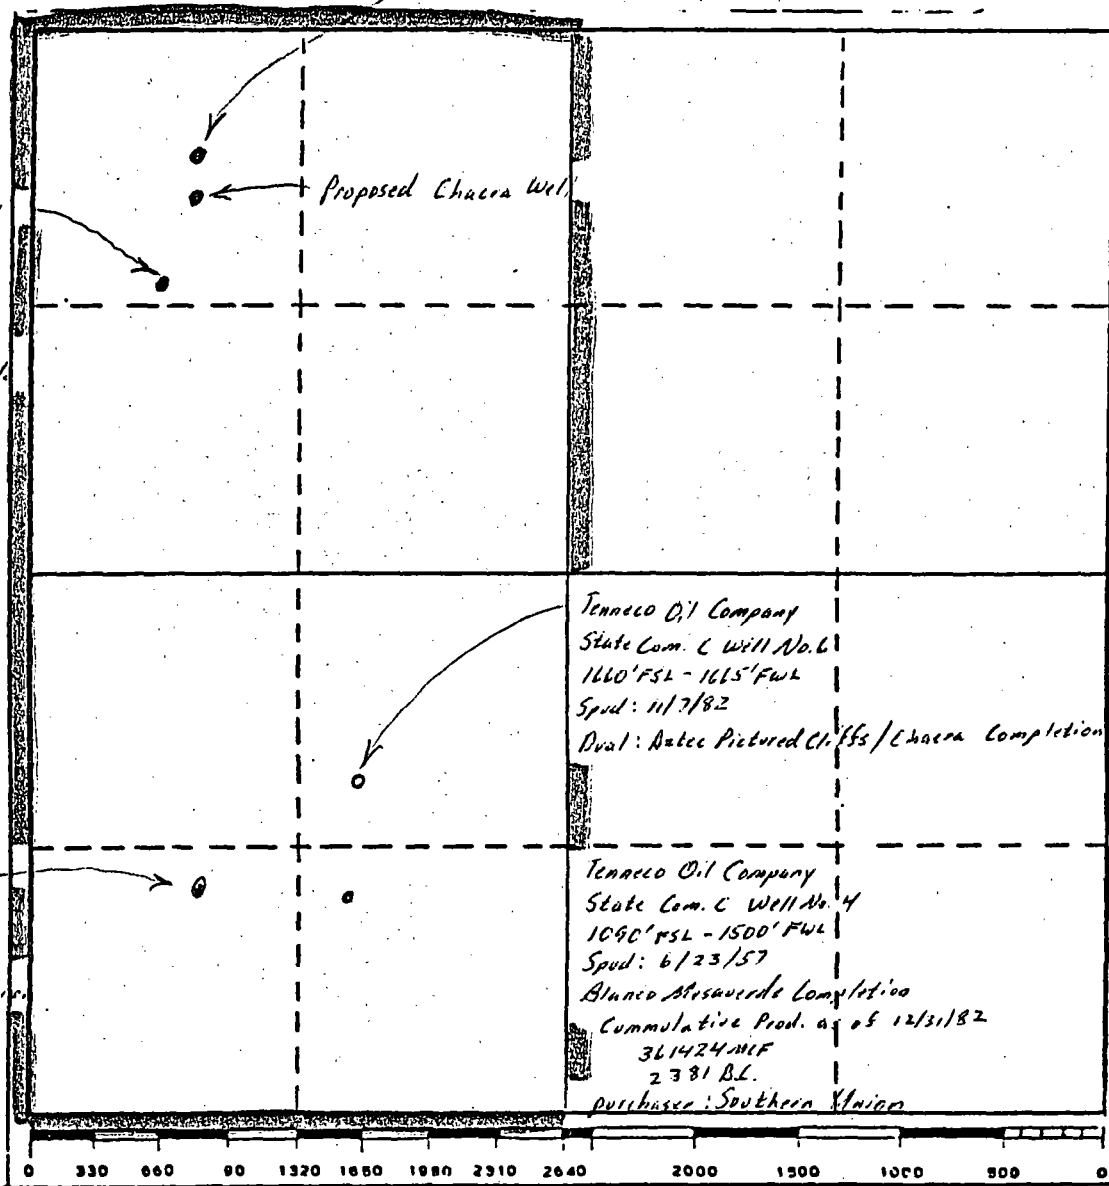 Proposed Chacra Well
Tenneco Oil Company
State Com. C Well No. 6
1660' FSL - 1665' FWL
Spud: 11/7/82
Dual: Aztec Pictured Cliffs / Chacra Completion
Tenneco Oil Company
State Com. C Well No. 4
1090' FSL - 1500' FWL
Spud: 6/23/57
Blanco Mesaverde Completion
Cummulative Prod. as of 12/31/82
361424 MCF
2381 BL.
purchaser: Southern Union
0 330 660 90 1320 1650 1980 2310 2640 2000 1500 1000 500 0